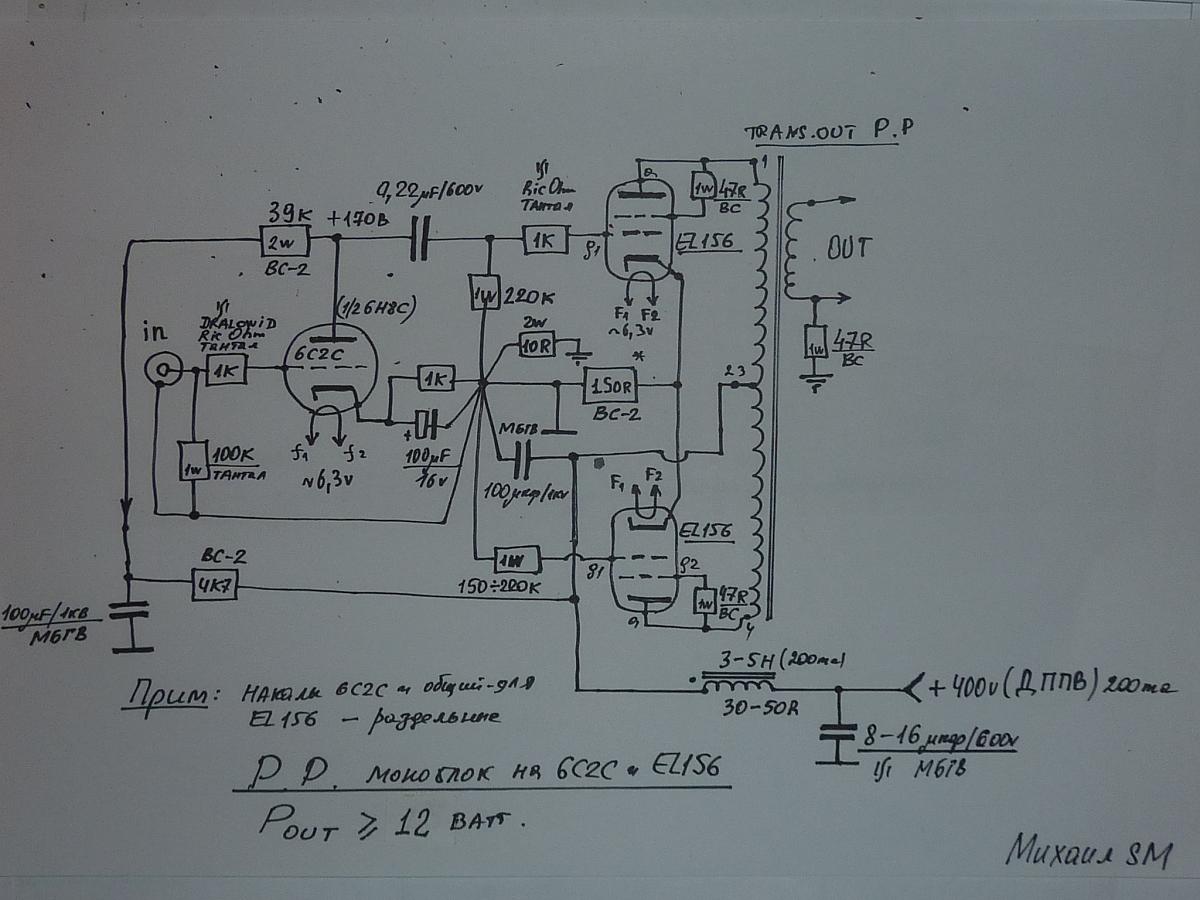 TRANS.OUT P.P
0,22µF/600v
Ric Ohm
ТАНТАЛ
1
1W
47R
BC
39K
+170В
2W
BC-2
1K
g1
a
EL156
OUT
1W
220K
F1 F2
~6,3v
(1/2 6Н8С)
in
DRALOWID
Ric Ohm
ТАНТАЛ
1K
6C2C
2W
10R
*
1W
47R
BC
1K
150R
BC-2
2 3
100K
1W
ТАНТАЛ
f1
f2
~6,3v
+
100µF
16v
МБГВ
100мкф/1кv
F1
F2
EL156
BC-2
4K7
1W
150÷220K
g1
g2
1W
47R
BC
a
4
100µF/1КВ
МБГВ
3-5H (200ma)
30-50R
+400v (ДППВ) 200ma
8-16 мкф/600v
МБГВ
Прим: НАКАЛЫ 6C2C и общий-для
EL156 - раздельные
P.P. моноблок на 6C2C и EL156
POUT ⩾ 12 ВАТТ.
Михаил SM